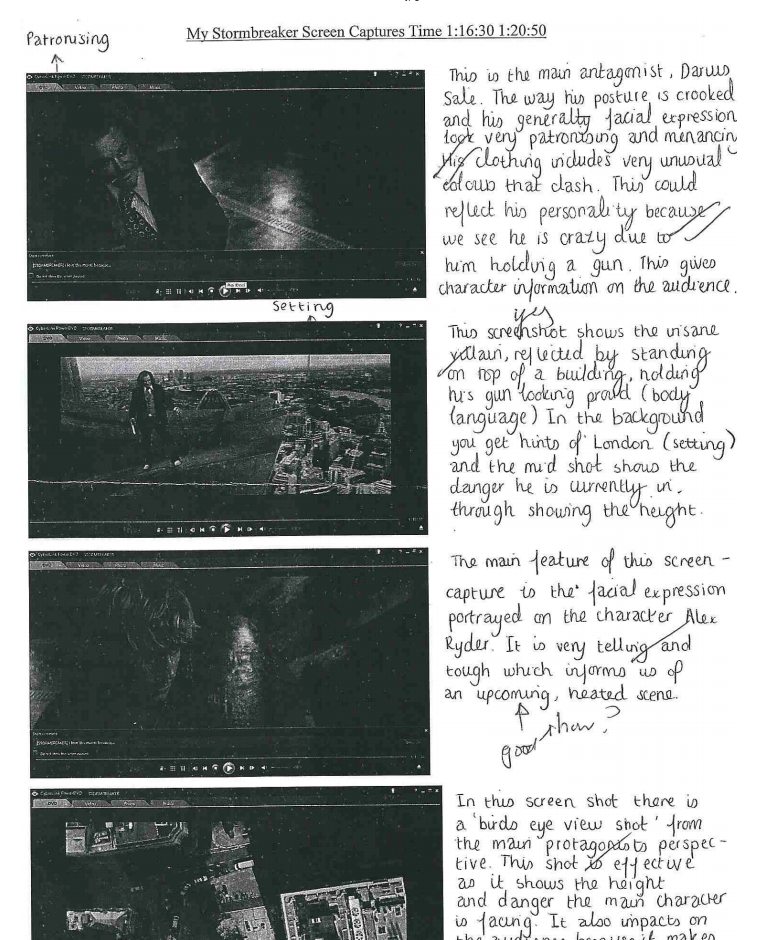 Patronising
My Stormbreaker Screen Captures Time 1:16:30 1:20:50
This is the main antagonist, Darius
Sale. The way his posture is crooked
and his generally facial expression
look very patronising and menancin
His clothing includes very unusual
colours that clash. This could
reflect his personality because
we see he is crazy due to
him holding a gun. This gives
character information on the audience.
Setting
yes
This screenshot shows the insane
villain, reflected by standing
on top of a building, holding
his gun looking proud (body
language) In the background
you get hints of London (setting)
and the mid shot shows the
danger he is currently in,
through showing the height.
The main feature of this screen-
capture is the facial expression
portrayed on the character Alex
Ryder. It is very telling and
tough which informs us of
an upcoming, heated scene.
good show?
In this screen shot there is
a 'birds eye view shot' from
the main protagonists perspec-
tive. This shot is effective
as it shows the height
and danger the main character
is facing. It also impacts on
the audience because it makes